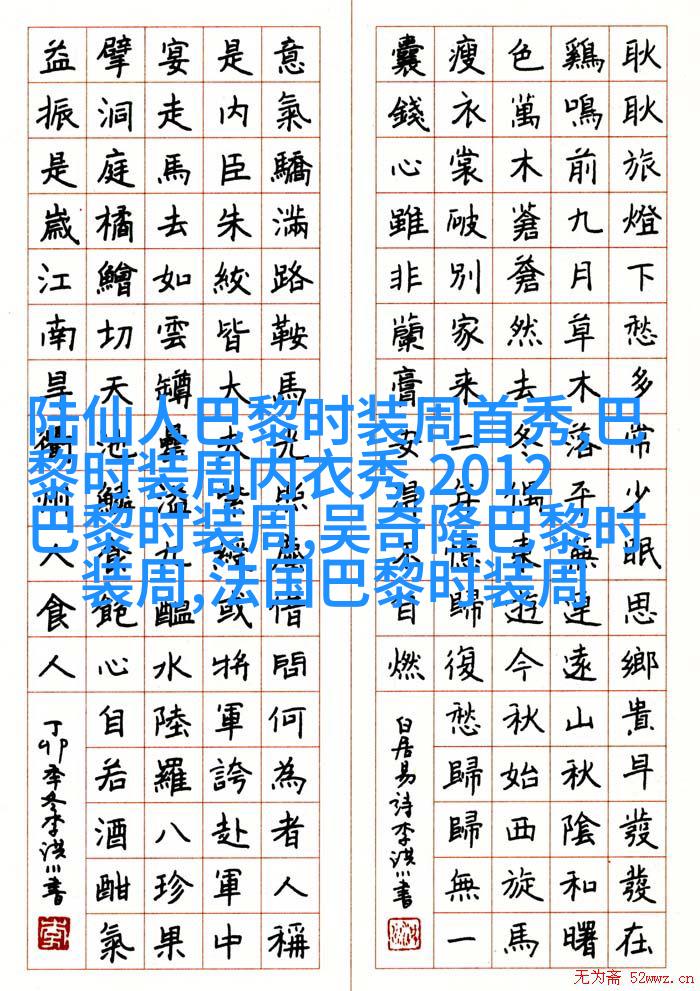 耿耿旅燈下愁多常少眠思鄉貴早發發在
鷄鳴前九月草木落平蕪連遠山秋陰和曙
色萬木蒼蒼然去冬偶東遊今秋始西旋馬
瘦衣裳破別家来二年憶歸復愁歸歸無一
囊錢心雖非蘭膏安得不自燃
白居易詩李洪川書
意氣驕滿路鞍馬光照塵借問何為者人稱
是内臣朱紱皆大夫紫綬或將軍誇赴軍中
宴走馬去如雲罇罍溢九醖水陸羅八珍果
擘洞庭橘鱠切天池鱗食飽心自若酒酣氣
益振是歲江南旱衢州人食人
丁卯季冬李洪川書
陆仙人巴黎时装周首秀,巴
黎时装周内衣秀,2012
巴黎时装周,吴奇隆巴黎时
装周,法国巴黎时装周
无为斋 52wwz.cn